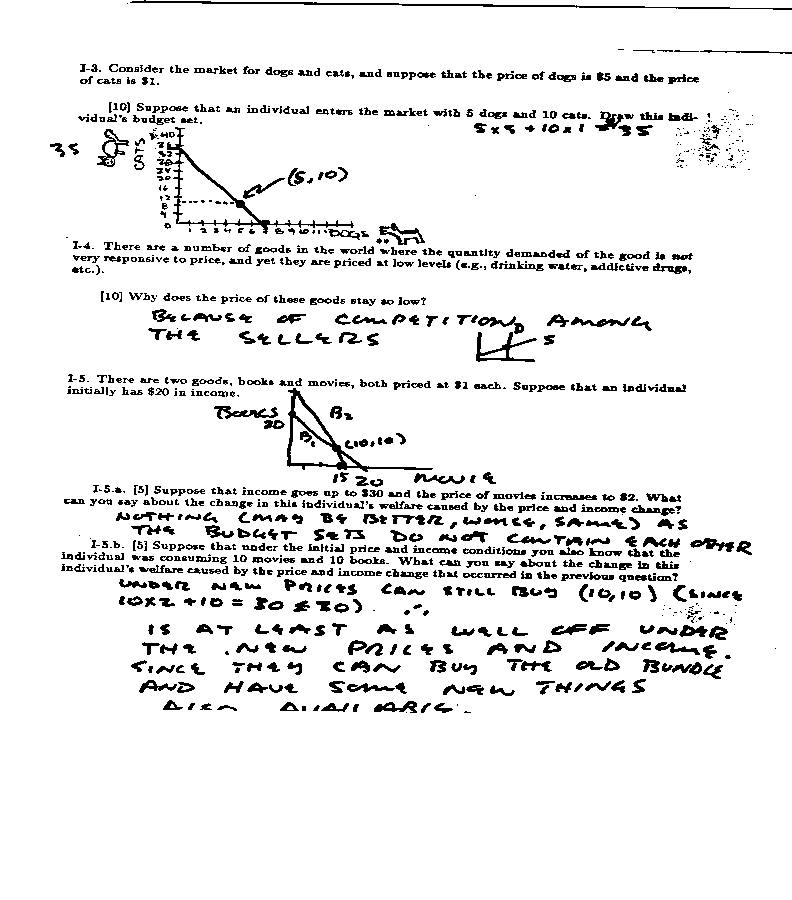 I-3. Consider the market for dogs and cats, and suppose that the price of dogs is $5 and the price
of cats is $1.
[10] Suppose that an individual enters the market with 5 dogs and 10 cats. Draw this indi-
vidual's budget set.
5 x 5 + 10 x 1 = 35
35
CATS
(5,10)
40
12
8
4
0
1 2 3 4 5 6 7 8 9 10 11 DOGS
I-4. There are a number of goods in the world where the quantity demanded of the good is not
very responsive to price, and yet they are priced at low levels (e.g., drinking water, addictive drugs,
etc.).
[10] Why does the price of these goods stay so low?
BECAUSE OF COMPETITION AMONG
THE SELLERS
D
S
I-5. There are two goods, books and movies, both priced at $1 each. Suppose that an individual
initially has $20 in income.
BOOKS
20
B2
B1
(10,10)
15 20 MOVIE
I-5.a. [5] Suppose that income goes up to $30 and the price of movies increases to $2. What
can you say about the change in this individual's welfare caused by the price and income change?
NOTHING (MAY BE BETTER, WORSE, SAME) AS
THE BUDGET SETS DO NOT CONTAIN EACH OTHER
I-5.b. [5] Suppose that under the initial price and income conditions you also know that the
individual was consuming 10 movies and 10 books. What can you say about the change in this
individual's welfare caused by the price and income change that occurred in the previous question?
UNDER NEW PRICES CAN STILL BUY (10,10) (SINCE
10x2 + 10 = 30 ≤ 30) ∴
IS AT LEAST AS WELL OFF UNDER
THE NEW PRICES AND INCOME.
SINCE THEY CAN BUY THE OLD BUNDLE
AND HAVE SOME NEW THINGS
ALSO AVAILABLE.